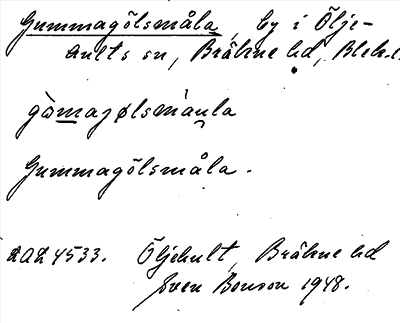 Gummagölsmåla, by i Ölje-
hults sn, Bräkne hd, Blek.l.
gòmagølsmàula
Gummagölsmåla.
4533. Öljehult, Bräkne hd
Sven Benson 1948.